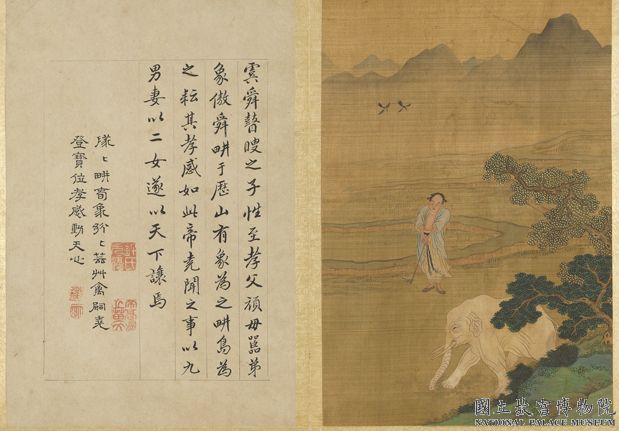 虞舜瞽瞍之子性至孝父頑母嚚弟
象傲舜畊于歷山有象為之畊鳥為
之耘其孝感如此帝堯聞之事以九
男妻以二女遂以天下讓焉
隊〻畊旾象紛〻耘艸禽嗣堯
登寶位孝感動天心
國立故宮博物院
NATIONAL PALACE MUSEUM